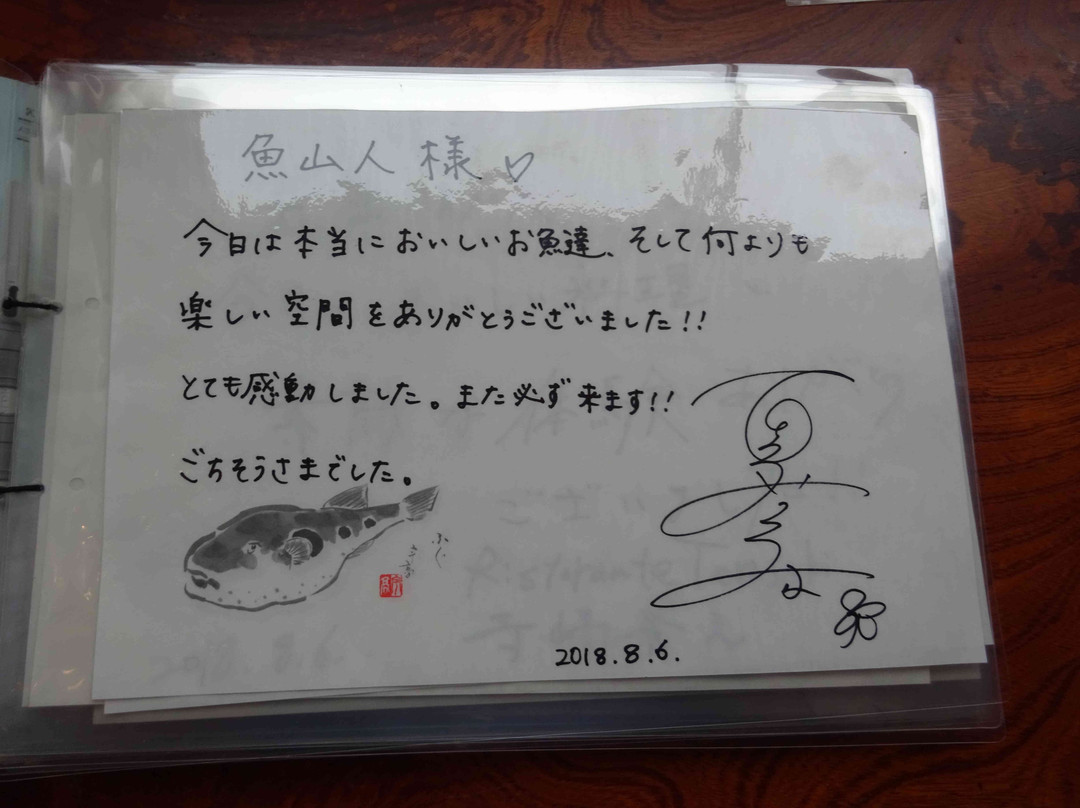 魚山人 様♡
今日は本当においしいお魚達、そして何よりも
楽しい空間をありがとうございました!!
とても感動しました。また必ず来ます!!
ごちそうさまでした。
ふぐ
2018.8.6.